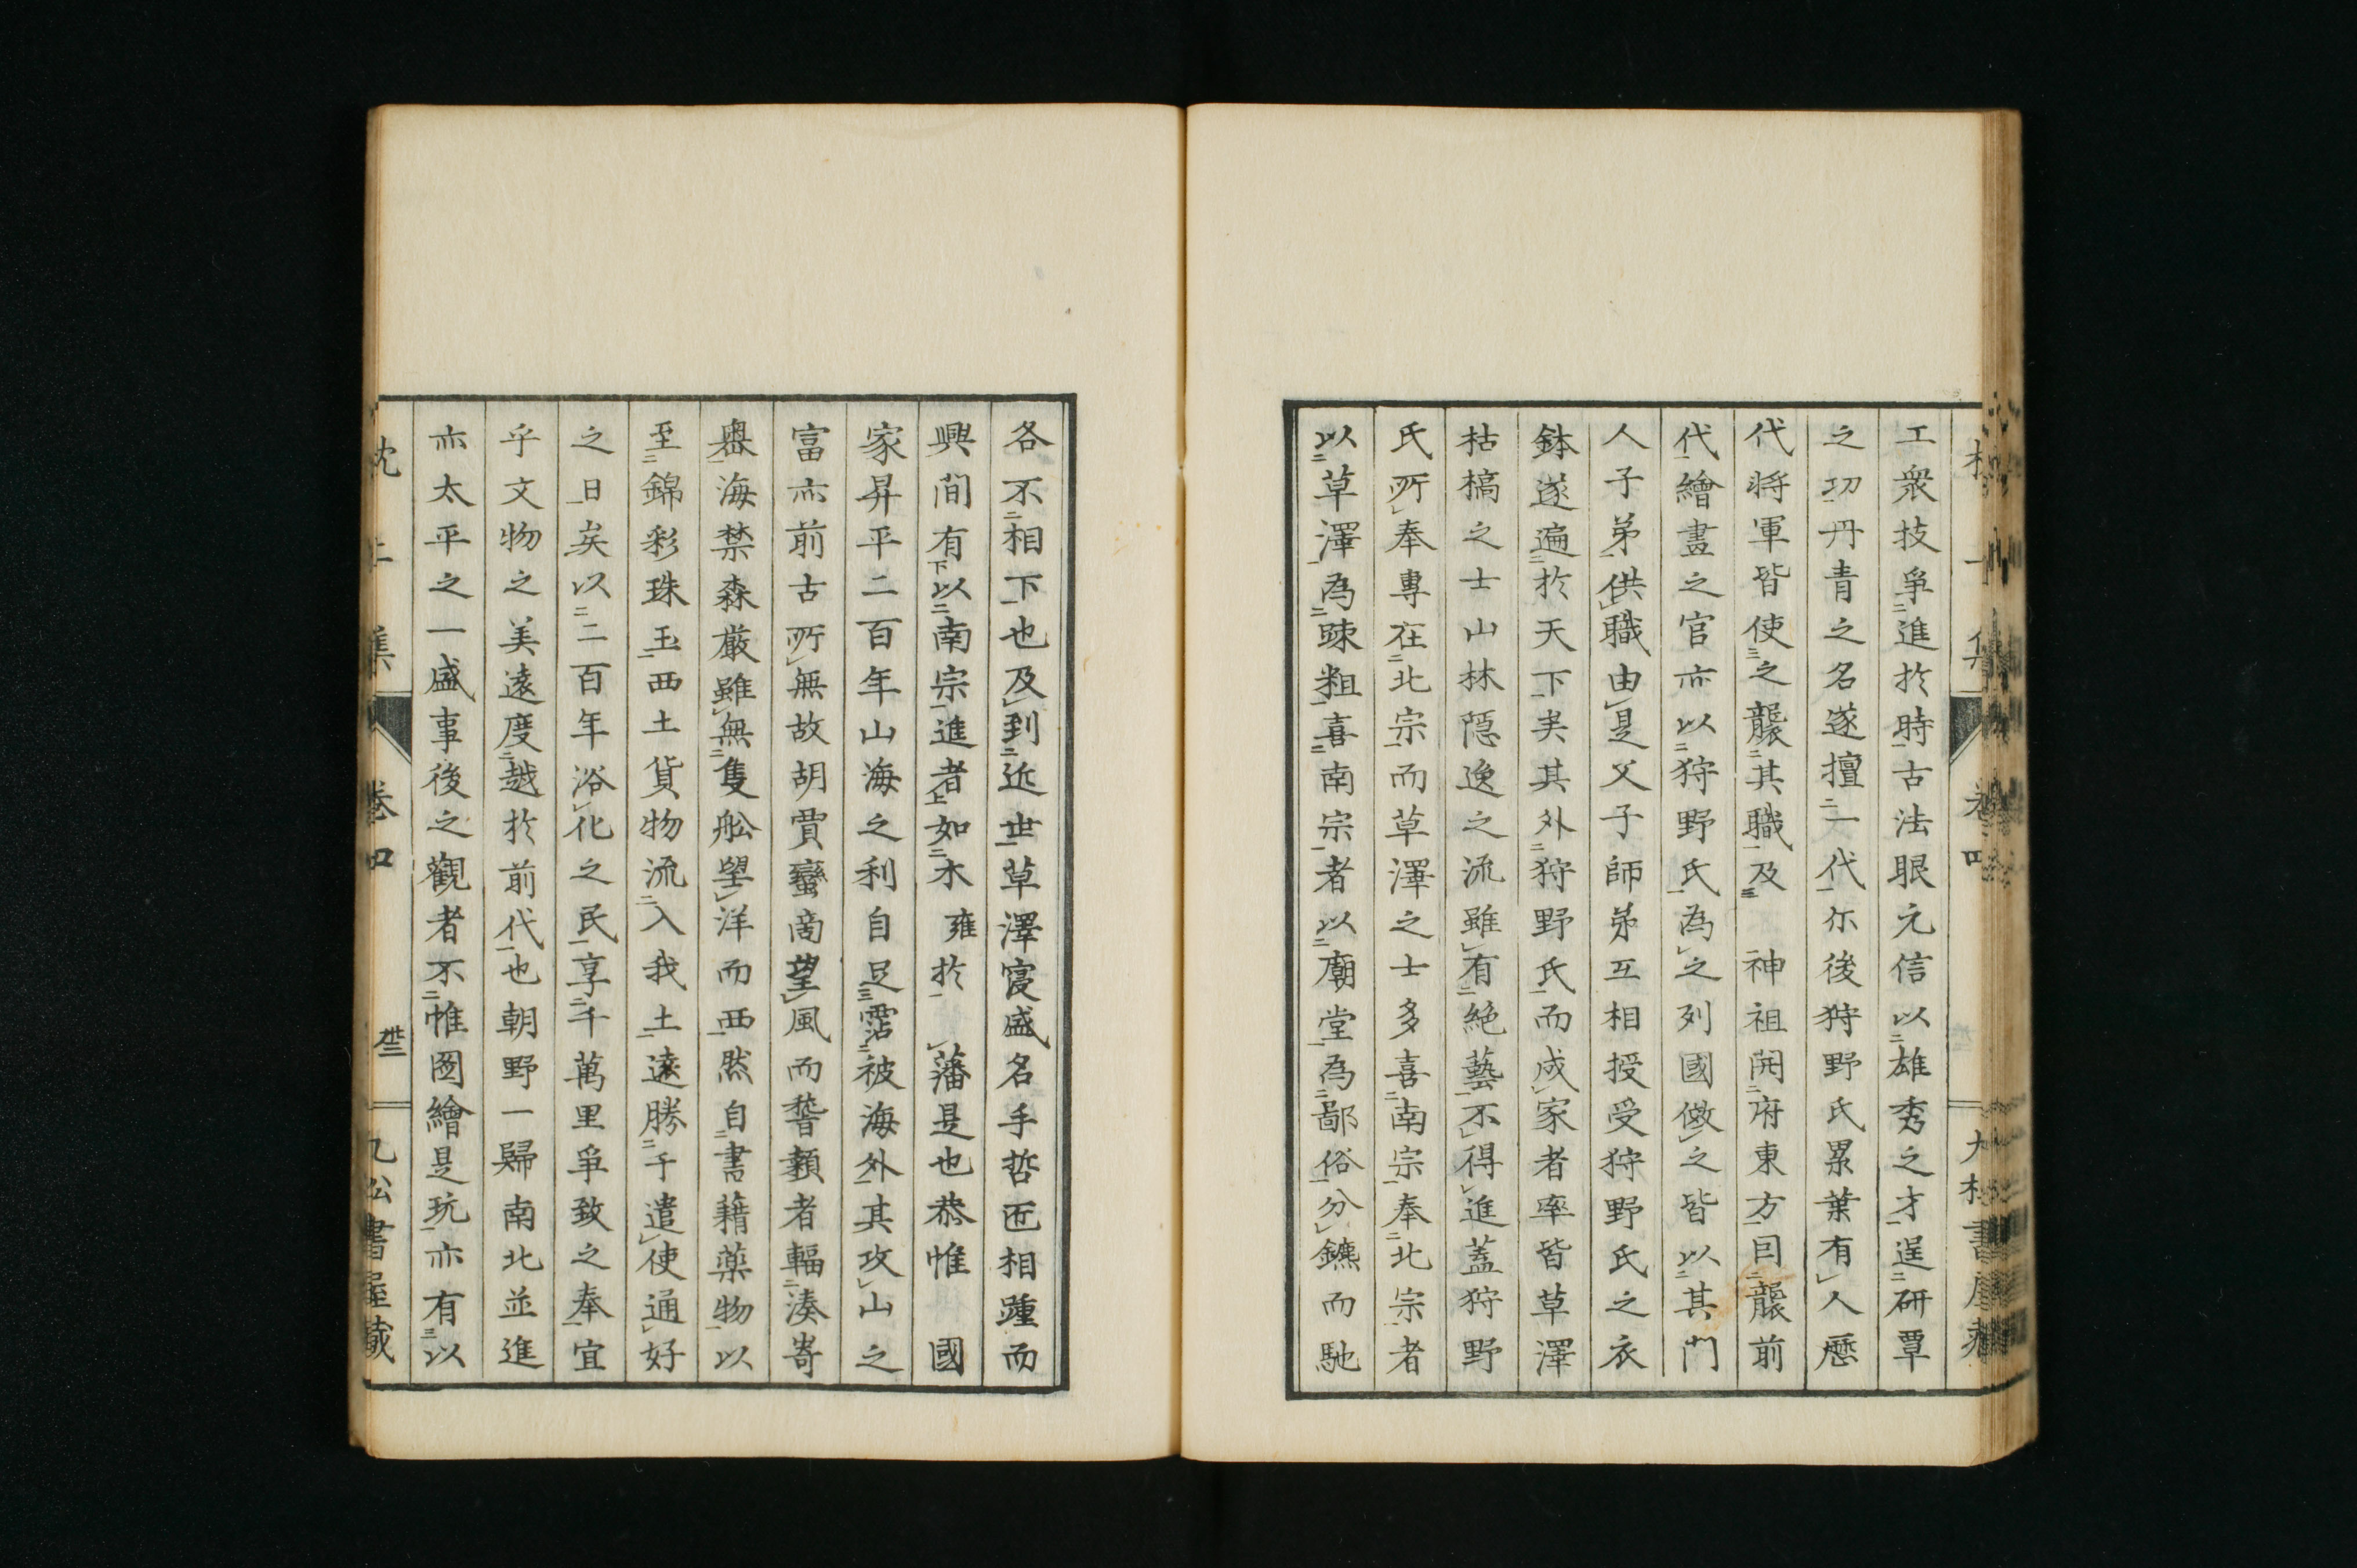 工衆技爭進於時古法眼元信以雄秀之才逞研覃
之功丹青之名遂擅一代尓後狩野氏累葉有人歷
代將軍皆使之襲其職及　神祖開府東方囙襲前
代繪畫之官亦以狩野氏為之列國倣之皆以其門
人子弟供職由是父子師弟互相授受狩野氏之衣
鉢遂遍於天下矣其外狩野氏而成家者率皆草澤
枯槁之士山林隱逸之流雖有絶藝不得進蓋狩野
氏所奉專在北宗而草澤之士多喜南宗奉北宗者
以草澤為踈粗喜南宗者以廟堂為鄙俗分鑣而馳
各不相下也及到近世草澤寖盛名手哲匠相踵而
興間有以南宗進者如木雍於　藩是也恭惟　國
家昇平二百年山海之利自足霑被海外其攻山之
富亦前古所無故胡賈蠻啇望風而謷顙者輻湊嵜
嶴海禁森嚴雖無隻舩望洋而西然自書藉藥物以
至錦彩珠玉西土貨物流入我土遠勝于遣使通好
之日矣以二百年浴化之民享千萬里爭致之奉宜
乎文物之美遠度越於前代也朝野一歸南北並進
亦太平之一盛事後之觀者不惟圖繪是玩亦有以
枕上集　卷四　卅三　九松書屋藏